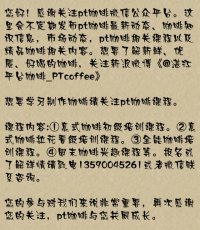 您好！感谢关注pt咖啡微信公众平台。这
里会不定期发布pt咖啡最新动态、咖啡知
识信息，市场动态，pt咖啡相关课程以及
精品咖啡相关内容。想要了解新鲜、优
质、好喝的咖啡，关注新浪微博《@湛江
平台咖啡_PTcoffee》
想要学习制作咖啡请关注pt咖啡课程。
课程内容:①意式咖啡初级培训课程。②意
式咖啡拉花看级培训课程。③全能咖啡培
训课程。④周末咖啡兴趣课程等。报名或
了解详情请致电13590045261或者微信联
系咨询。
您的参与对我们来说非常重要，再次感谢
您的关注，pt咖啡与您共同成长。